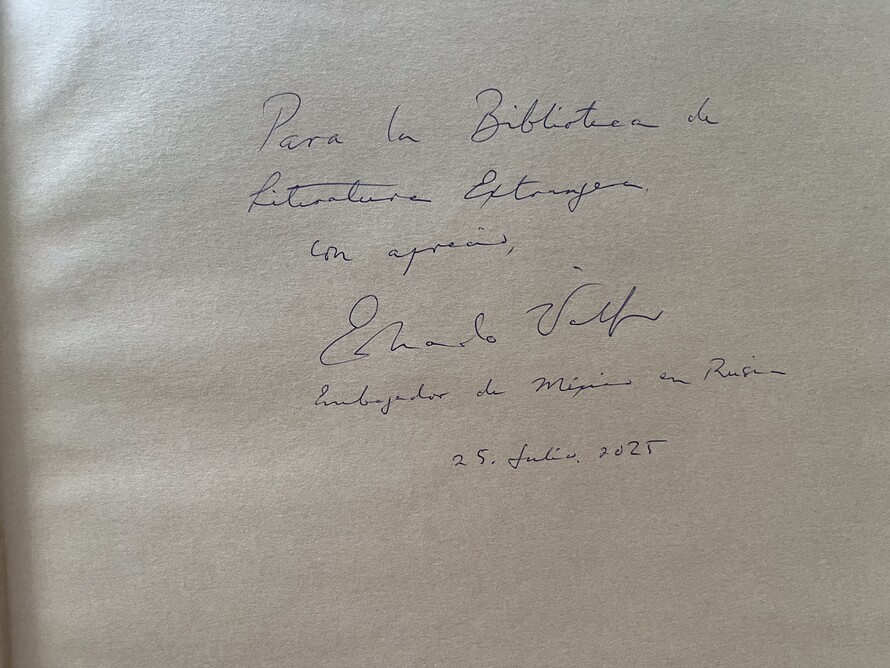 Para la Biblioteca de
Literatura Extranjera.
con aprecio,
Eduardo
Embajador de México en Rusia
25. Julio. 2025